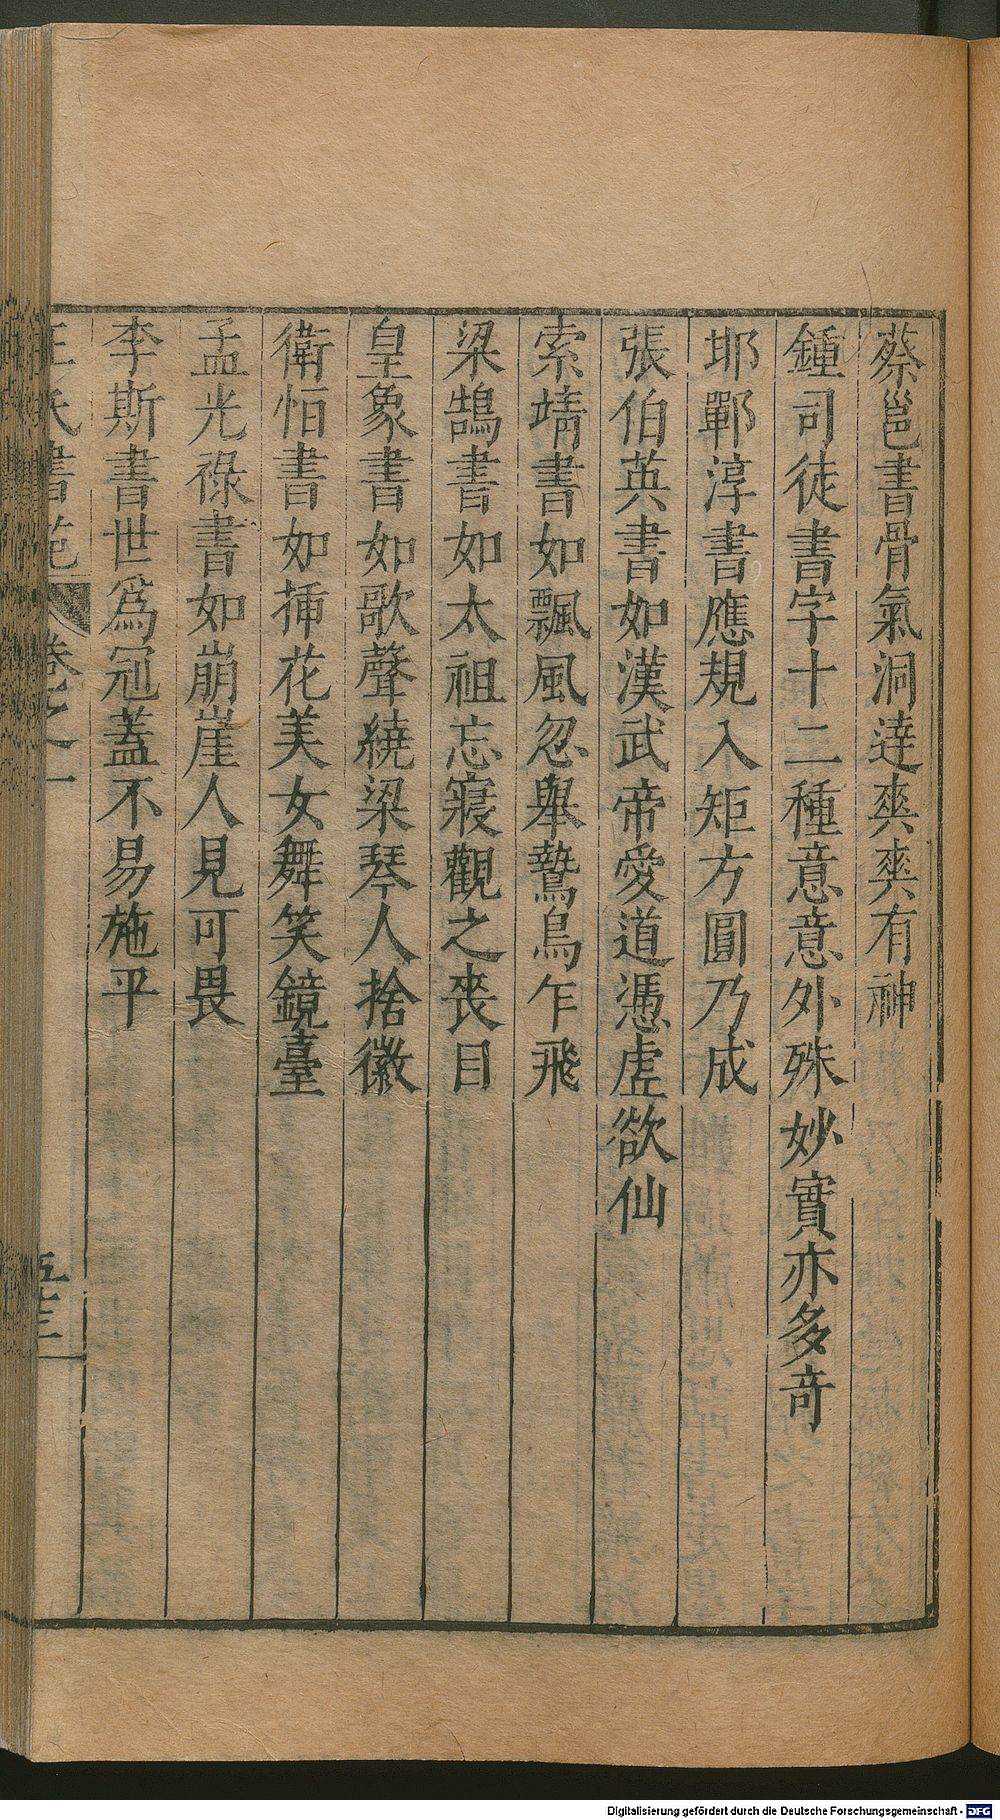 蔡邕書骨氣洞達爽爽有神
鍾司徒書字十二種意意外殊妙實亦多奇
邯鄲淳書應規入矩方圓乃成
張伯英書如漢武帝愛道憑虛欲仙
索靖書如飄風忽舉鷙鳥乍飛
梁鵠書如太祖忘寢觀之喪目
皇象書如歌聲繞梁琴人捨徽
衛恒書如揷花美女舞笑鏡臺
孟光祿書如崩崖人見可畏
李斯書世爲冠蓋不易施平
王氏書苑 卷之一
Digitalisierung gefördert durch die Deutsche Forschungsgemeinschaft - DFG